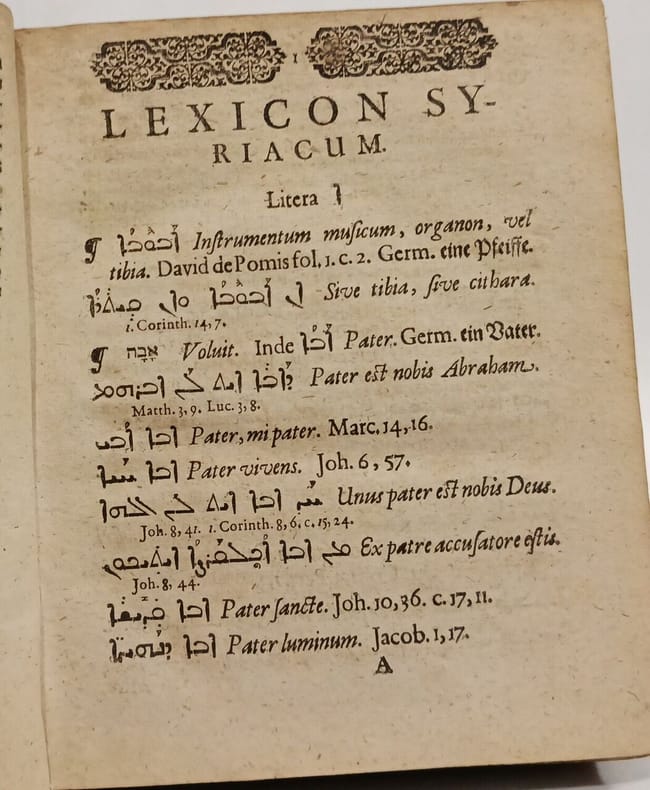 1
LEXICON SY-
RIACUM.
Litera ܐ
¶ ܐܒܘܒܐ Inſtrumentum muſicum, organon, vel
tibia. David de Pomis fol. 1. c. 2. Germ. eine Pfeiffe.
ܐܢ ܐܒܘܒܐ ܘܐܢ ܩܝܬܪܐ Sive tibia, ſive cithara.
1. Corinth. 14, 7.
¶ אָבָה Voluit. Inde ܐܒܐ Pater. Germ. ein Vater.
ܕܐܒܐ ܐܝܬ ܠܢ ܐܒܪܗܡ Pater eſt nobis Abraham.
Matth. 3, 9. Luc. 3, 8.
ܐܒܐ ܐܒܝ Pater, mi pater. Marc. 14, 16.
ܐܒܐ ܚܝܐ Pater vivens. Joh. 6, 57.
ܚܕ ܐܒܐ ܐܝܬ ܠܢ ܐܠܗܐ Unus pater eſt nobis Deus.
Joh. 8, 41. 1. Corinth. 8, 6. c. 15, 24.
ܡܢ ܐܒܐ ܐܟܠܩܪܨܐ ܐܝܬܝܟܘܢ Ex patre accuſatore eſtis.
Joh. 8, 44.
ܐܒܐ ܩܕܝܫܐ Pater ſancte. Joh. 10, 36. c. 17, 11.
ܐܒܐ ܕܢܗܝܪܐ Pater luminum. Jacob. 1, 17.
A